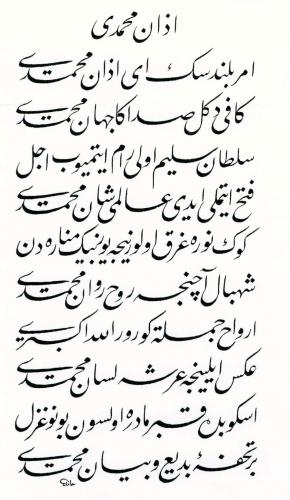 اذان محمدی
امر بلندسك ای اذان محمدی
كافی دكل صداكا جهان محمدی
سلطان سلیم اولی رام ایتمیوب اجل
فتح ایتملی ایدی عالمی شان محمدی
كوك نوره غرق اولور نیجه یوز بیك مناره دن
شهبال آچنجه روح روان محمدی
ارواح جمله كورور الله اكبری
عكس ایلینجه عرشه لسان محمدی
اسكوبده قبر مادره اولسون بو نو غزل
بر تحفهٔ بدیع و بیان محمدی